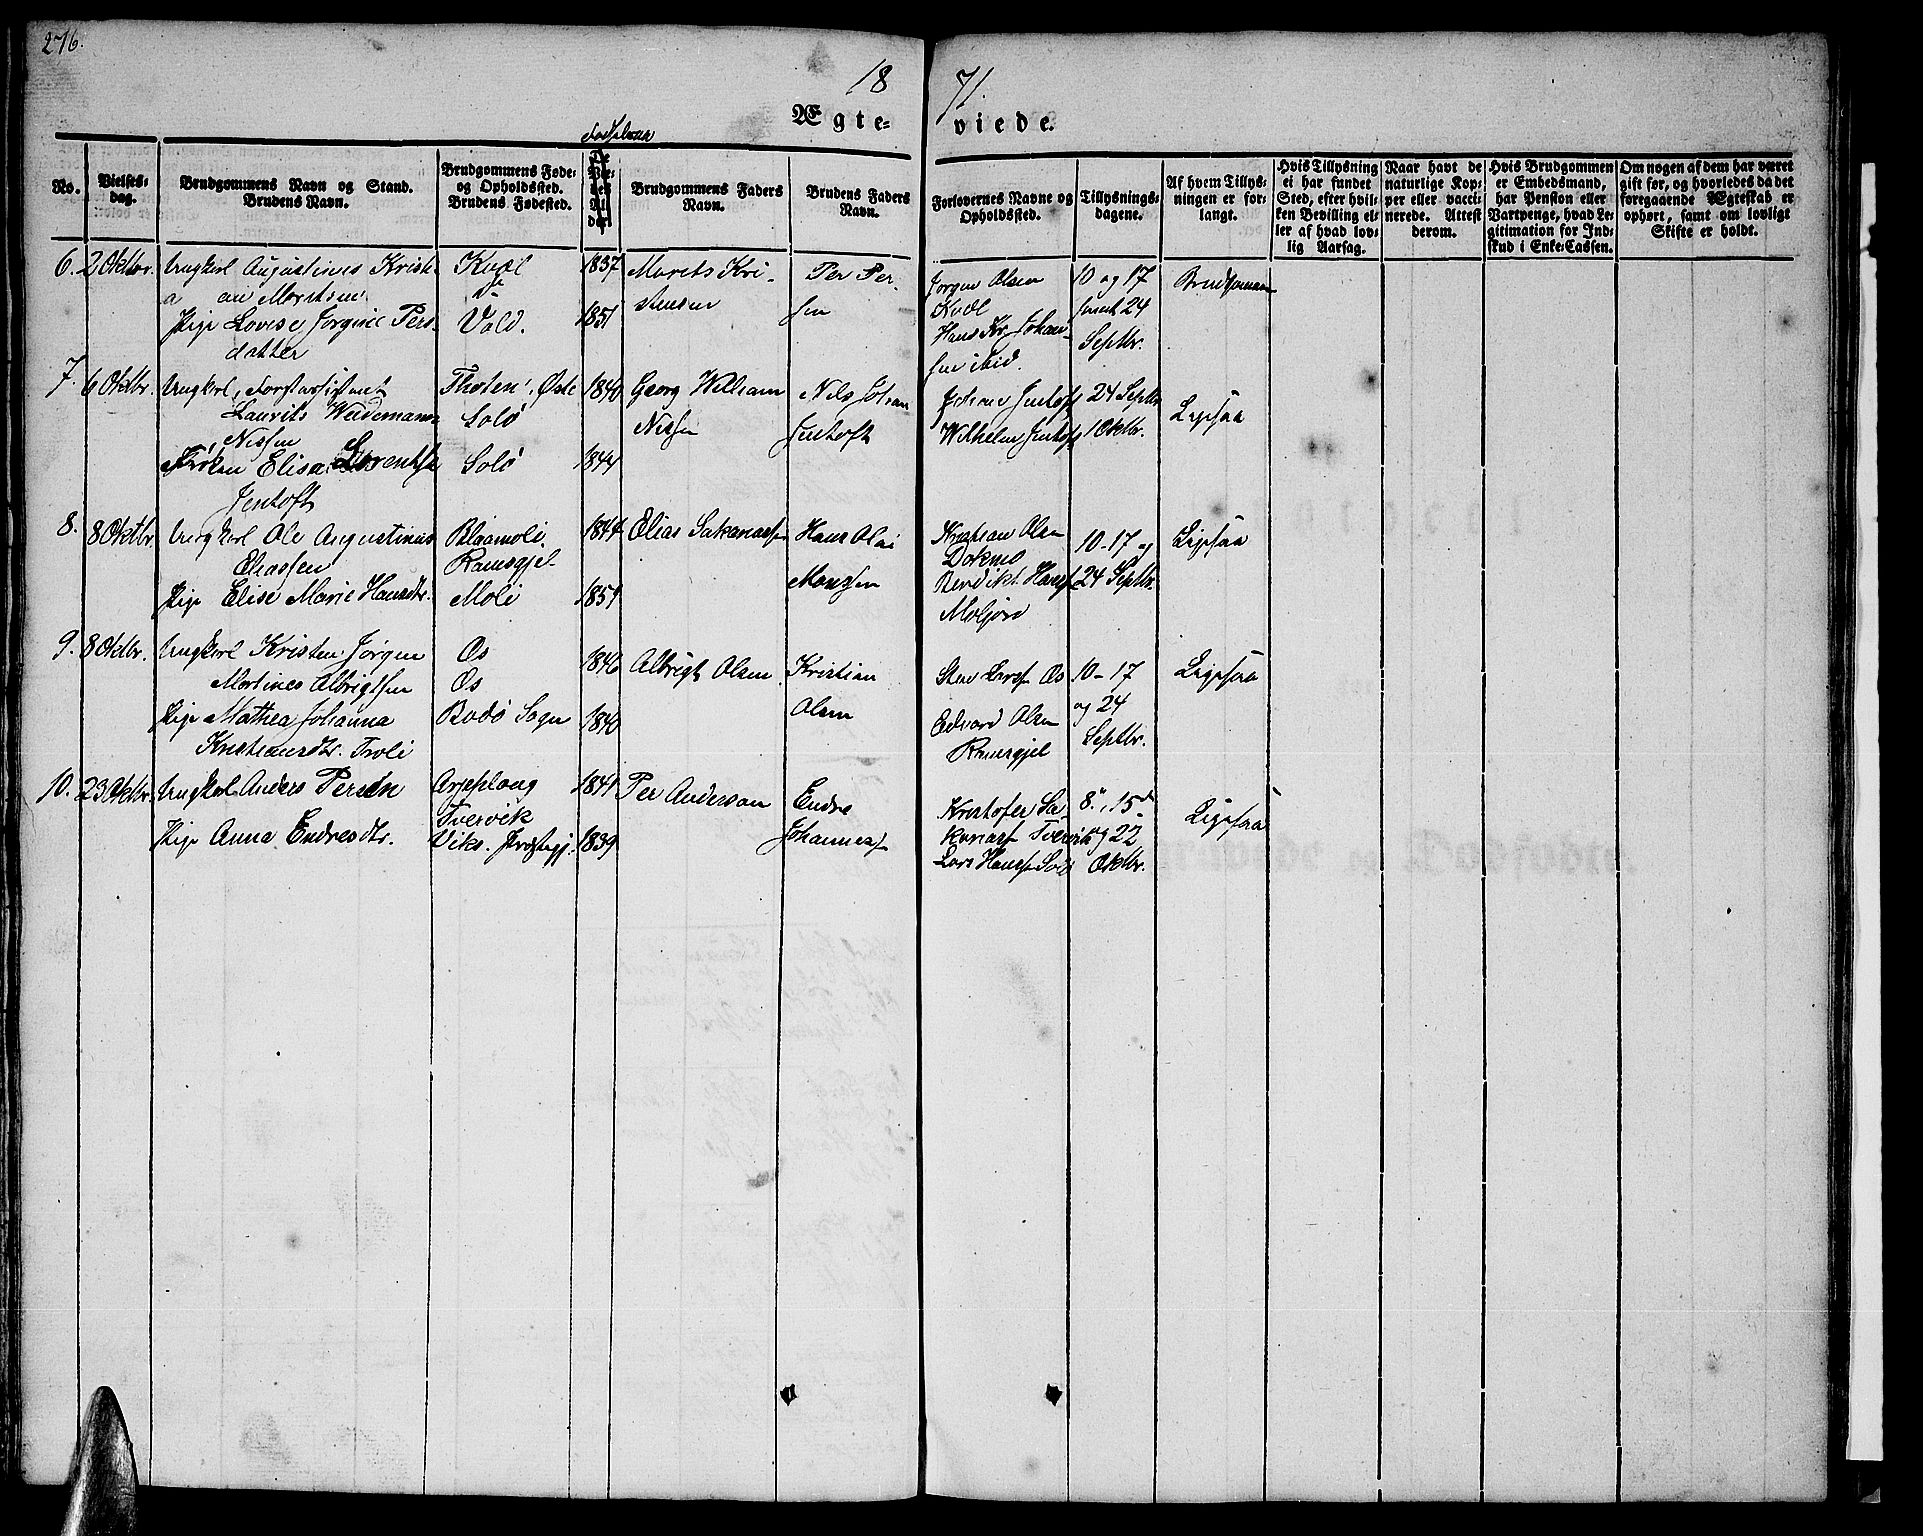 276.
18 71.
Ægte= viede.
Fødselsaar
No.
Vielses-
dag.
Brudgommens Navn og Stand.
Brudens Navn.
Brudgommens Føde-
og Opholdssted.
Brudens Fødested.
Brudgommens Faders
Navn.
Brudens Faders
Navn.
Forlovernes Navne og
Opholdssted.
Tillysnings-
dagene.
Af hvem Tillys-
ningen er for-
langt.
Hvis Tillysning
ei har fundet
Sted, efter hvil-
ken Bevilling el-
ler af hvad lov-
lig Aarsag.
Naar havt de
naturlige Kop-
per eller vacci-
nerede. Attest
derom.
Hvis Brudgommen
er Embedsmand,
har Pension eller
Vartpenge, hvad Le-
gitimation for Ind-
skud i Enke-Cassen.
Om nogen af dem har været
gift før, og hvorledes da det
foregaaende Ægteskab er
ophørt, samt om lovligt
Skifte er holdt.
6. 2 Oktbr.
Ungkarl Augustinus Kristi-
an Moritsen
Pige Lovise Jørgine Pers-
datter
Kvæl
Vold.
1837
1851
Morits Kri-
stensen
Per Per-
sen
Jørgen Olsen
Kvæl
Hans Kr. Johan-
sen ibid.
10 og 17
samt 24
Septbr.
Brudgommen
7. 6 Oktbr.
Ungkarl, Forstassistent
Laurits Weidemann
Nissen
Frøken Elisa Lorentse
Jentoft
Thoten, Øste
Solø
Solø
1840
1844
Georg William
Nissen
Nils Johan
Jentoft
Johan Jentoft
Wilhelm Jentoft
24 Septbr
1 Oktbr.
Ligesaa
8. 8 Oktbr.
Ungkarl Ole Augustinus
Eliassen
Pige Elise Marie Hansdtr.
Blaamoli.
Ramsgjel
Moli
1844
1851
Elias Sakariassen
Hans Olai
Monssen
Kristian Olsen
Dokmo
Benedikt Hanss.
Moljord
10-17 og
24 Septbr.
Ligesaa
9. 8 Oktbr.
Ungkarl Kristen Jørgen
Martines Albrigtsen
Pige Mathea Johanna
Kristiansdtr. Troli
Os
Os
Bodø Sogn
1846
1840
Albrigt Olsen
Kristian
Olsen
Sten Larss. Os
Edvard Olsen
Ramsgjel
10-17
og 24
Septbr.
Ligesaa
10. 23 Oktbr.
Ungkarl Anders Persen
Pige Anna Endresdtr.
Arjeploug
Tvervik
Viks. Præstegj.
1841
1839
Per Anderson
Endre
Johanness.
Kristofer Sa-
karias. Tvervik
Lars Hanss. Solø
8de, 15de
og 22
Oktbr.
Ligesaa